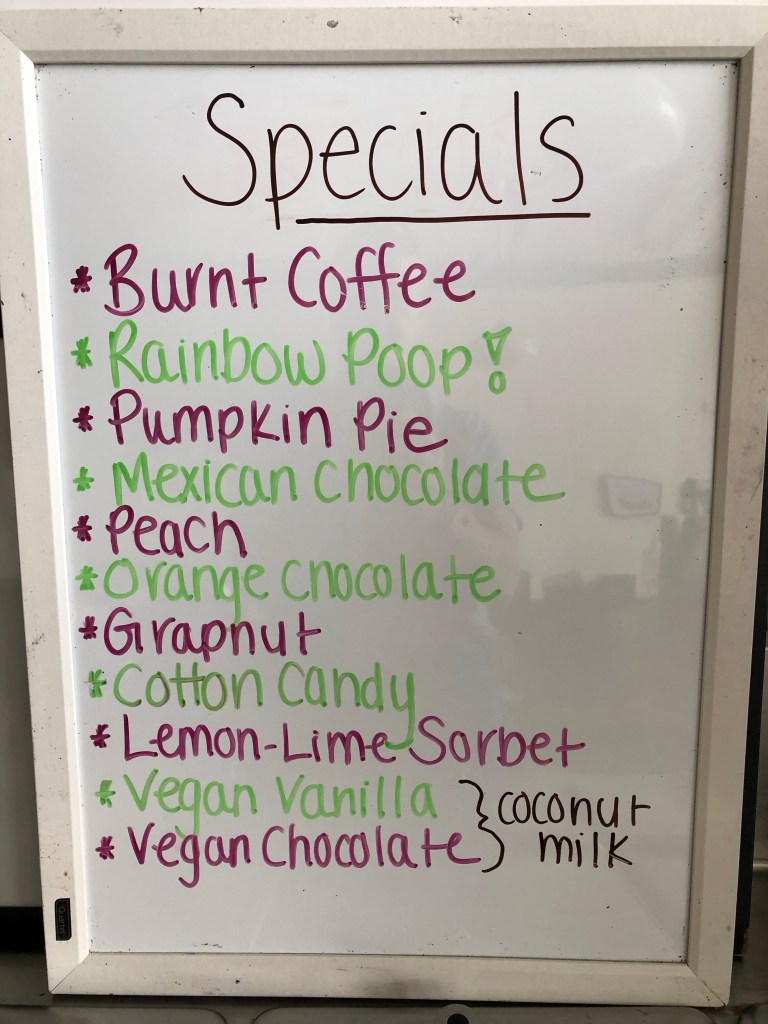 Specials
* Burnt Coffee
* Rainbow Poop!
* Pumpkin Pie
* Mexican Chocolate
* Peach
* Orange Chocolate
* Grapnut
* Cotton Candy
* Lemon-Lime Sorbet
* Vegan Vanilla
* Vegan Chocolate
} coconut
milk
Quartet